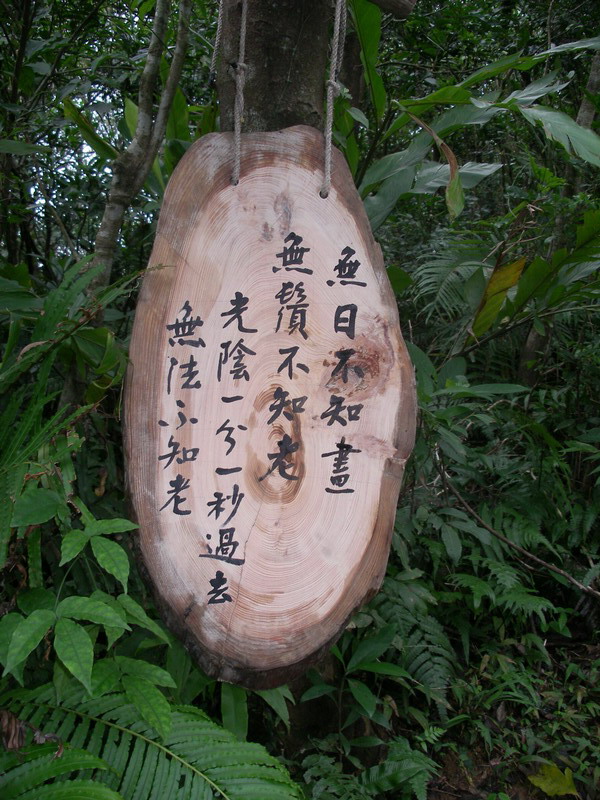 無日不知畫
無鬚不知老
光陰一分一秒過去
無法不知老